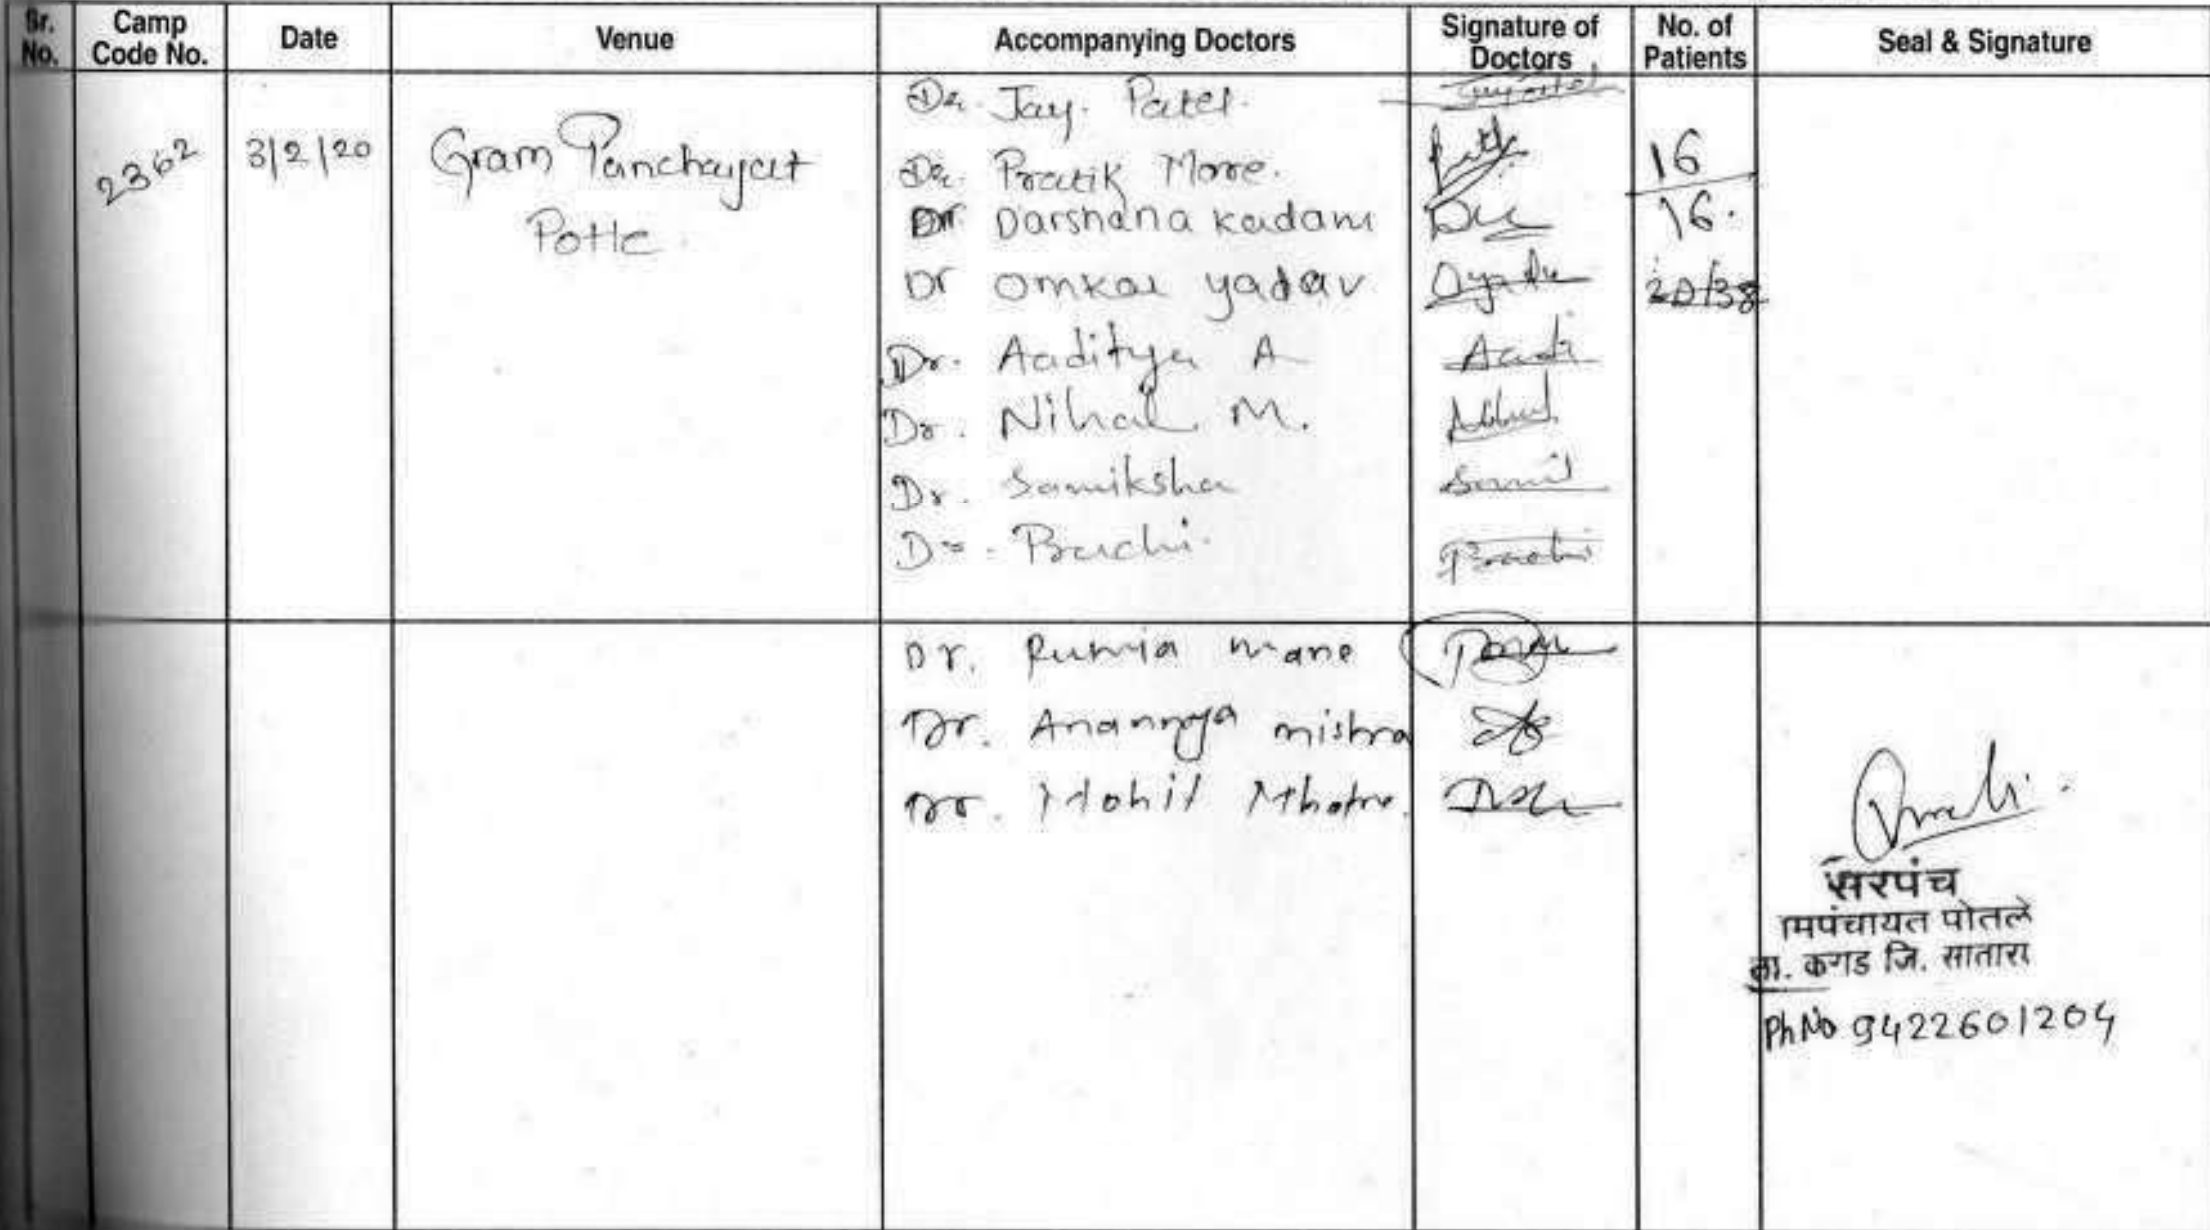 Sr. No. Camp Code No. Date Venue Accompanying Doctors Signature of Doctors No. of Patients Seal & Signature
2362 3/2/20 Gram Panchayat
Dr. Jay. Patel.
Dr. Pratik More. 16
Dr Darshana Kadam 16.
Dr Omkar yadav
Dr. Aaditya A Aadi
Dr. Nihal M. Nihal
Dr. Samiksha
Dr. Prachi. Prachi
Dr. mane
Dr. Anannya mishra
Dr. Mohil Mhatre.
सरपंच
मपंचायत पोतले
ता. कराड जि. सातारा
Ph No 9422601204